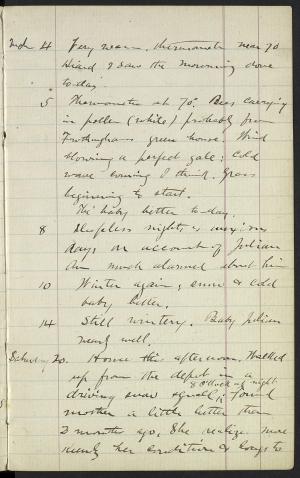 Mch 4 Very warm, thermometer near 70
Heard & saw the mourning dove
to day.
5 Thermometer at 70°. Bees carrying
in pollen (white) probably from
Frothinghams green house. Wind
blowing a perfect gale; cold
wave coming I think. Grass
beginning to start.
The baby better to-day.
8 Sleepless nights & anxious
days on account of Julian
Am much alarmed about him
10 Winter again; snow & cold
baby better.
14 Still wintery. Baby Julian
nearly well.
Saturday 20. Home this afternoon, Walked
up from the depot in a
8 O'clock at night
driving snow squall; Found
mother a little better than
a month ago. She realizes more
her condition & longs to